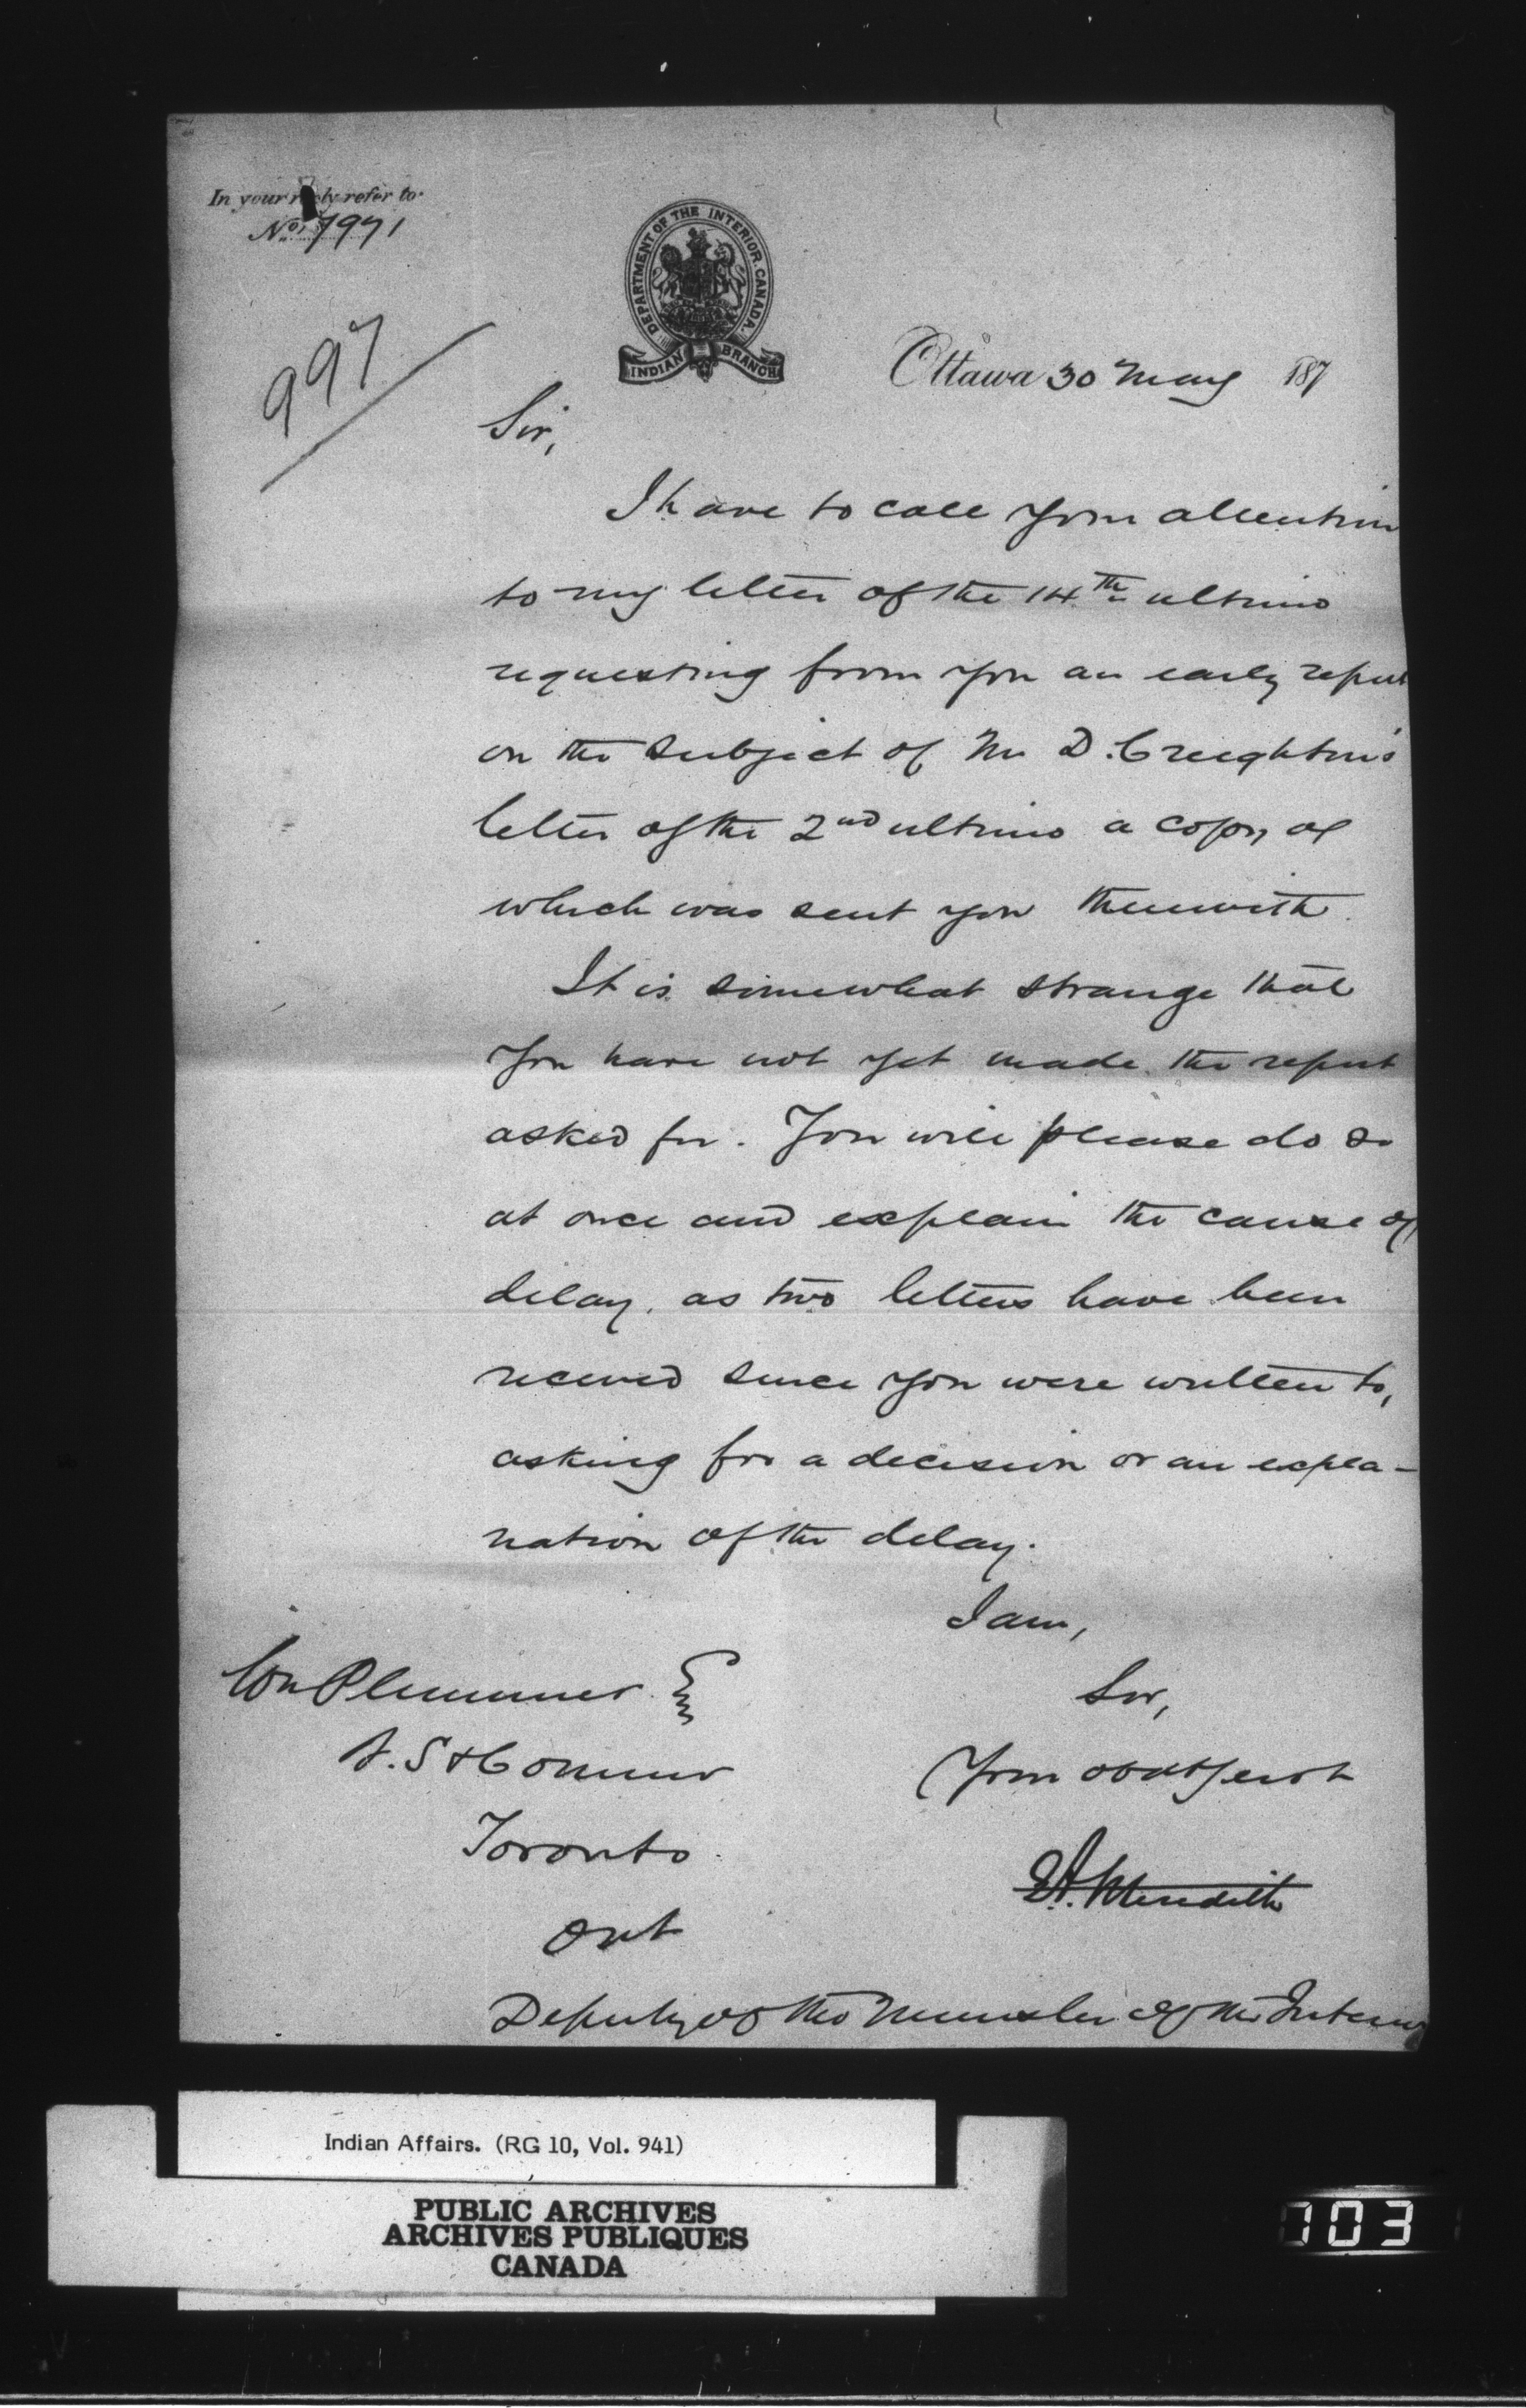 In your reply refer to
No. 7971
997
DEPARTMENT OF THE INTERIOR. CANADA.
INDIAN BRANCH
Ottawa 30 May 187
Sir,
I have to call your attention
to my letter of the 14th ultimo
requesting from you an early report
on the subject of Mr D. Creighton's
letter of the 2nd ultimo a copy of
which was sent you therewith.
It is somewhat strange that
you have not yet made the report
asked for. You will please do so
at once and explain the cause of
delay, as two letters have been
received since you were written to,
asking for a decision or an expla-
nation of the delay.
I am,
Sir,
Your obdt Servt
E.A. Meredith
Deputy of the Minister of the Interior
Wm Plummer Esq
V.S & Commr
Toronto
Ont
Indian Affairs. (RG 10, Vol. 941)
PUBLIC ARCHIVES
ARCHIVES PUBLIQUES
CANADA
703